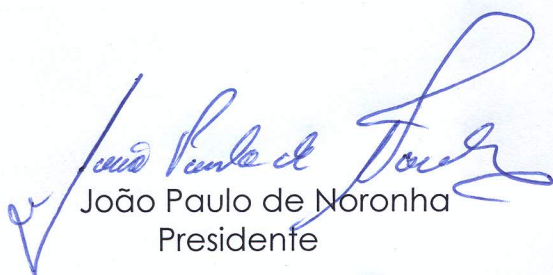 João Paulo de Noronha
João Paulo de Noronha
Presidente